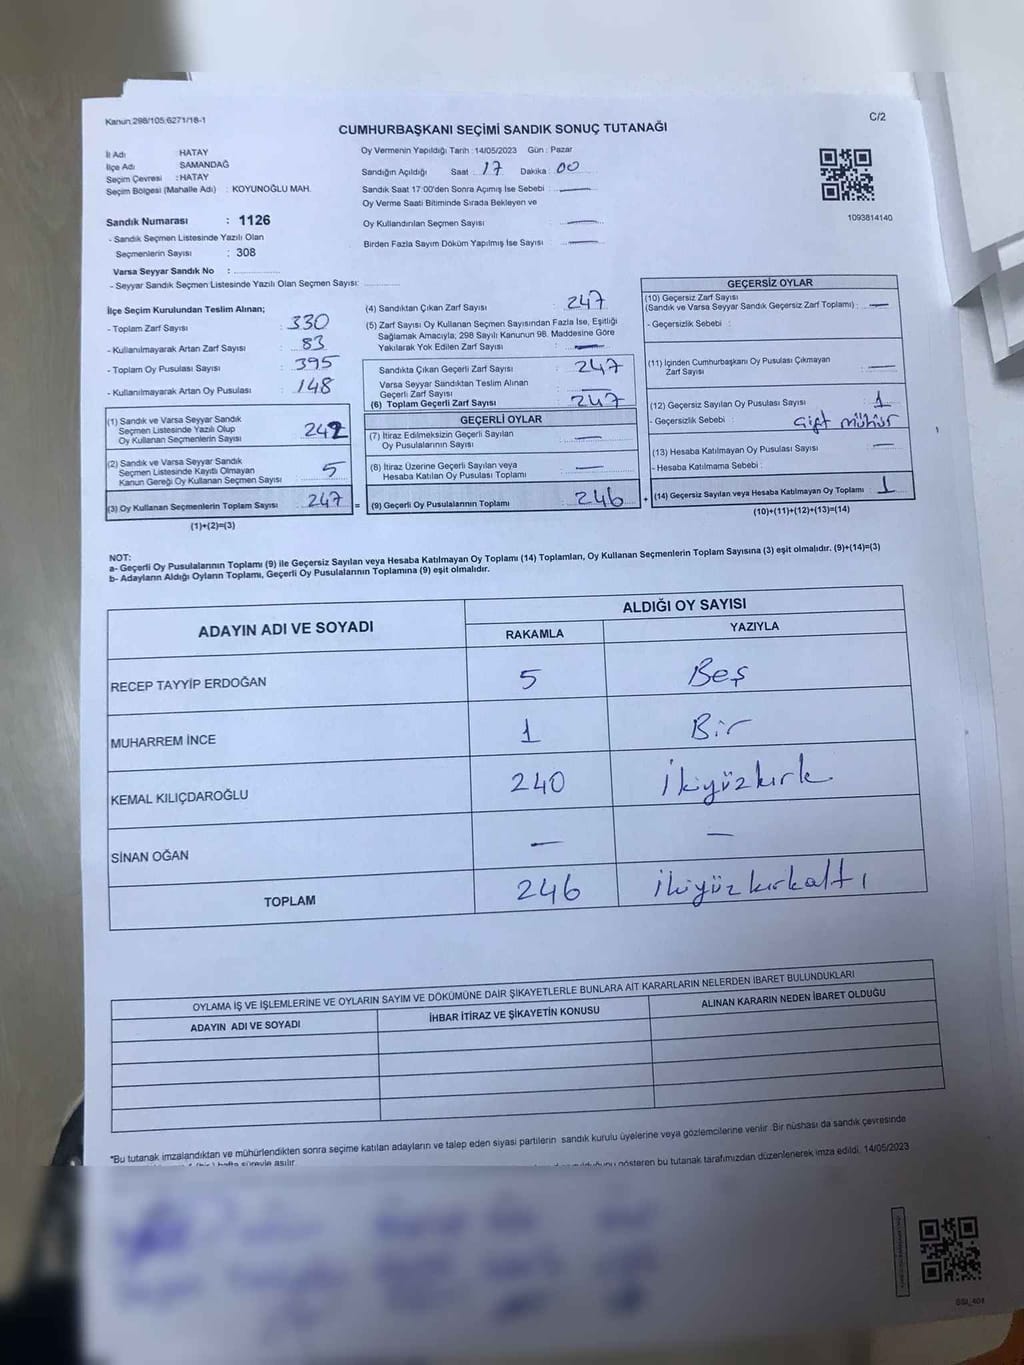 Kanun:298/105:6271/18-1
C/2
CUMHURBAŞKANI SEÇİMİ SANDIK SONUÇ TUTANAĞI
İl Adı : HATAY
İlçe Adı : SAMANDAĞ
Seçim Çevresi : HATAY
Seçim Bölgesi (Mahalle Adı) : KOYUNOĞLU MAH.
Sandık Numarası : 1126
- Sandık Seçmen Listesinde Yazılı Olan
Seçmenlerin Sayısı : 308
Varsa Seyyar Sandık No :
- Seyyar Sandık Seçmen Listesinde Yazılı Olan Seçmen Sayısı:
Oy Vermenin Yapıldığı Tarih :14/05/2023 Gün : Pazar
Sandığın Açıldığı Saat : 17 Dakika : 00
Sandık Saat 17:00'den Sonra Açılmış İse Sebebi : —
Oy Verme Saati Bitiminde Sırada Bekleyen ve
Oy Kullandırılan Seçmen Sayısı : —
Birden Fazla Sayım Döküm Yapılmış İse Sayısı : —
1093814140
İlçe Seçim Kurulundan Teslim Alınan;
- Toplam Zarf Sayısı : 330
- Kullanılmayarak Artan Zarf Sayısı : 83
- Toplam Oy Pusulası Sayısı : 395
- Kullanılmayarak Artan Oy Pusulası : 148
(1) Sandık ve Varsa Seyyar Sandık
Seçmen Listesinde Yazılı Olup
Oy Kullanan Seçmenlerin Sayısı : 242
(2) Sandık ve Varsa Seyyar Sandık
Seçmen Listesinde Kayıtlı Olmayan
Kanun Gereği Oy Kullanan Seçmen Sayısı : 5
(3) Oy Kullanan Seçmenlerin Toplam Sayısı : 247 =
(1)+(2)=(3)
(4) Sandıktan Çıkan Zarf Sayısı : 247
(5) Zarf Sayısı Oy Kullanan Seçmen Sayısından Fazla İse, Eşitliği
Sağlamak Amacıyla, 298 Sayılı Kanunun 98. Maddesine Göre
Yakılarak Yok Edilen Zarf Sayısı : —
Sandıkta Çıkan Geçerli Zarf Sayısı : 247
Varsa Seyyar Sandıktan Teslim Alınan
Geçerli Zarf Sayısı : —
(6) Toplam Geçerli Zarf Sayısı : 247
GEÇERLİ OYLAR
(7) İtiraz Edilmeksizin Geçerli Sayılan
Oy Pusulalarının Sayısı : —
(8) İtiraz Üzerine Geçerli Sayılan veya
Hesaba Katılan Oy Pusulası Toplamı : —
(9) Geçerli Oy Pusulalarının Toplamı : 246 +
GEÇERSİZ OYLAR
(10) Geçersiz Zarf Sayısı
(Sandık ve Varsa Seyyar Sandık Geçersiz Zarf Toplamı) : —
- Geçersizlik Sebebi :
(11) İçinden Cumhurbaşkanı Oy Pusulası Çıkmayan
Zarf Sayısı : —
(12) Geçersiz Sayılan Oy Pusulası Sayısı : 1
- Geçersizlik Sebebi : Çift mühür
(13) Hesaba Katılmayan Oy Pusulası Sayısı : —
- Hesaba Katılmama Sebebi :
(14) Geçersiz Sayılan veya Hesaba Katılmayan Oy Toplamı : 1
(10)+(11)+(12)+(13)=(14)
NOT:
a- Geçerli Oy Pusulalarının Toplamı (9) ile Geçersiz Sayılan veya Hesaba Katılmayan Oy Toplamı (14) Toplamları, Oy Kullanan Seçmenlerin Toplam Sayısına (3) eşit olmalıdır. (9)+(14)=(3)
b- Adayların Aldığı Oyların Toplamı, Geçerli Oy Pusulalarının Toplamına (9) eşit olmalıdır.
ADAYIN ADI VE SOYADI
ALDIĞI OY SAYISI
RAKAMLA YAZIYLA
RECEP TAYYİP ERDOĞAN 5 Beş
MUHARREM İNCE 1 Bir
KEMAL KILIÇDAROĞLU 240 İkiyüzkırk
SİNAN OĞAN — —
TOPLAM 246 ikiyüzkırkaltı
OYLAMA İŞ VE İŞLEMLERİNE VE OYLARIN SAYIM VE DÖKÜMÜNE DAİR ŞİKAYETLERLE BUNLARA AİT KARARLARIN NELERDEN İBARET BULUNDUKLARI
ADAYIN ADI VE SOYADI İHBAR İTİRAZ VE ŞİKAYETİN KONUSU ALINAN KARARIN NEDEN İBARET OLDUĞU
*Bu tutanak imzalandıktan ve mühürlendikten sonra seçime katılan adayların ve talep eden siyasi partilerin sandık kurulu üyelerine veya gözlemcilerine verilir. Bir nüshası da sandık çevresinde
hafta süreyle asılır.
gösteren bu tutanak tarafımızdan düzenlenerek imza edildi. 14/05/2023